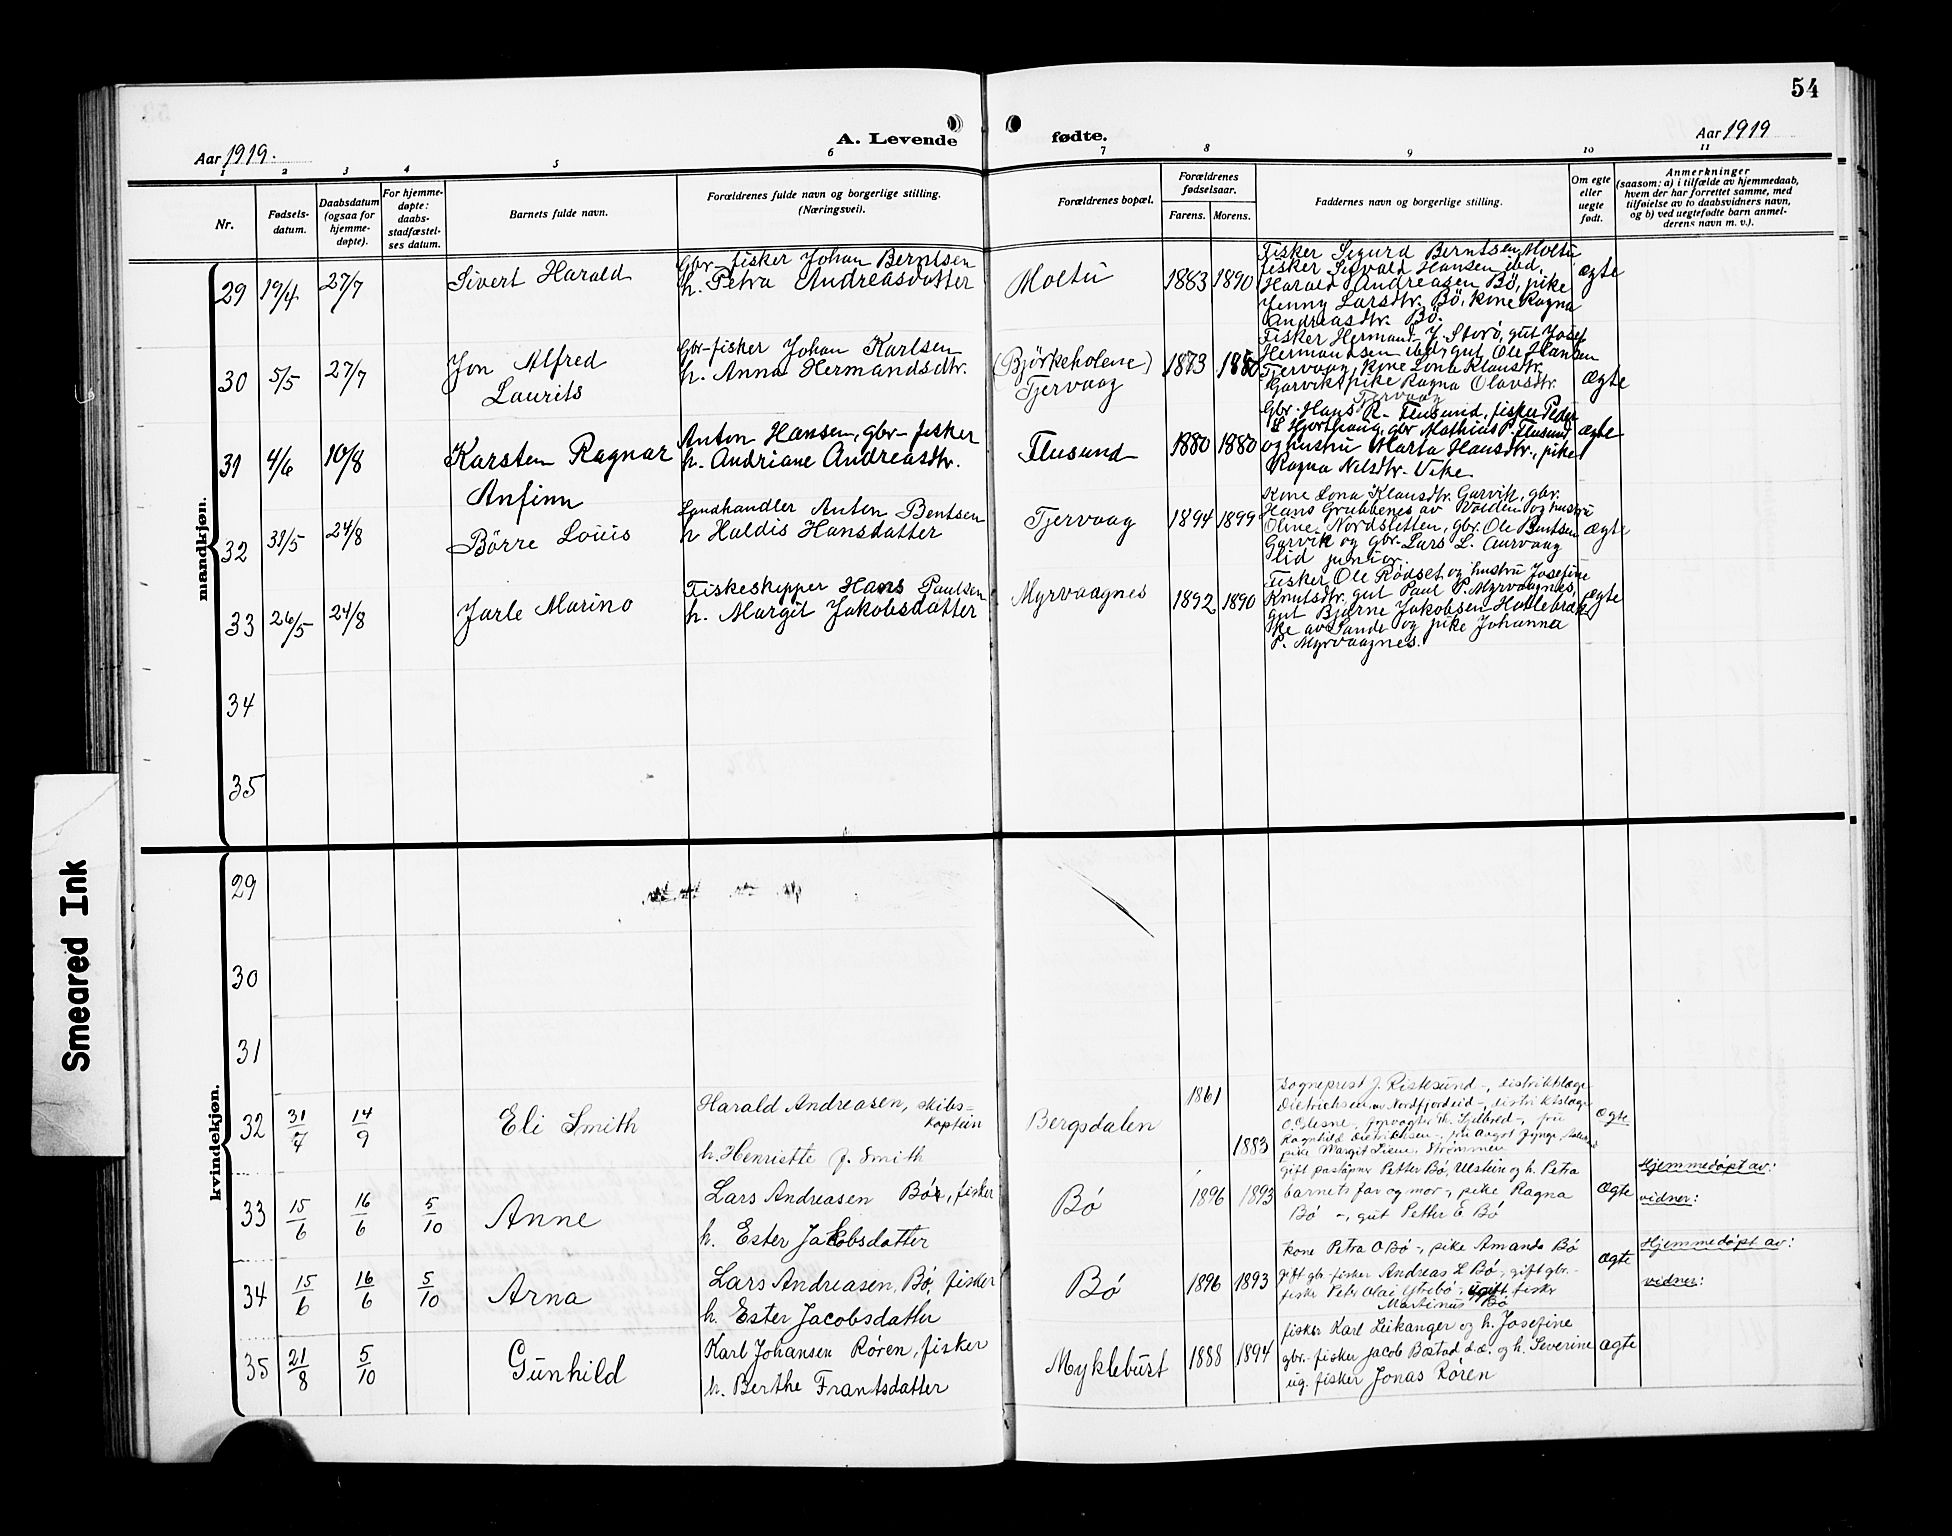 54
Aar 1919.
A. Levende fødte.
Aar 1919
1 2 3 4 5 6 7 8 9 10 11
Nr.
Fødsels-
datum.
Daabsdatum
(ogsaa for
hjemme-
døpte).
For hjemme-
døpte:
daabs-
stadfæstel-
ses datum.
Barnets fulde navn.
Forældrenes fulde navn og borgerlige stilling.
(Næringsvei).
Forældrenes bopæl.
Forældrenes
fødselsaar.
Farens. Morens.
Faddernes navn og borgerlige stilling.
Om egte
eller
uegte
født.
Anmerkninger
(saasom: a) i tilfælde av hjemmedaab,
hvem der har forrettet samme, med
tilføielse av to daabsvidners navn,
og b) ved uegtefødte barn anmel-
derens navn m. v.).
mandkjøn.
29 19/4 27/7 Sivert Harald
Gbr-fisker Johan Berntsen
h. Petra Andreasdatter
Moltu 1883 1890
Fisker Sigurd Berntsen Moltu
fisker Sigvald Hansen ibd,
Harald Andreasen Bö, pike
Jenny Larsdtr. Bö, kone Ragna
Andreasdtr. Bö.
ægte
30 5/5 27/7 Jon Alfred
Laurits
Gbr-fisker Johan Karlsen
h. Anna Hermandsdtr.
(Björkeholene)
Tjervaag
1873 1880
Fisker Hermand J. Storö, gut Josef
Hermandsen ibd, gut Ole Hansen
Tjervaag, kone Lona Klausdtr.
Garvik, pike Ragna Olavsdtr.
Tjervaag
ægte
31 4/6 10/8 Karsten Ragnar
Anfinn
Anton Hansen, gbr-fisker
h. Andriane Andreasdtr.
Flusund 1880 1880
Gbr. Hans R. Flusund, fisker Peder
L Hjorthaug, gbr Mathias P. Flusund
og hustru Marta Hansdtr., pike
Ragna Nilsdtr. Vike
ægte
32 31/5 24/8 Börre Louis
Landhandler Anton Bentsen
h Haldis Hansdatter
Tjervaag 1894 1899
Kone Lona Klausdtr. Garvik, gbr.
Hans Grubbenes av Volden og hustru
Oline Nordsletten, gbr. Ole Bentsen
Garvik og gbr. Lars L. Aurvaag
lid junior.
ægte
33 26/5 24/8 Jarle Marino
Fiskeskipper Hans Paulsen
h. Margit Jakobsdatter
Myrvaagnes 1892 1890
Fisker Ole Rödset og hustru Josefine
Knutsdtr. gut Paul P. Myrvaagnes,
gut Bjarne Jakobsen
av Sande og pike Johanna
P. Myrvaagnes.
ægte
34
35
kvindekjøn.
29
30
31
32 31/7 14/9 Eli Smith
Harald Andreasen, skibs-
kaptein
h. Henriette J. Smith
Bergsdalen 1861 1883
Sogneprest J. Ristesund -, distriktslæge
Dietrichsen av Nordfjordeid -, distriktslæge
fru
Ragnhild Dietrichsen -, fru
pike Margit Strømmen
Ægte
33 15/6 16/6 5/10 Anne
Lars Andreasen Bö, fisker
h. Ester Jakobsdatter
Bø 1896 1893
gift Petter Bö, Ulstein og h. Petra
barnets far og mor -, pike Ragna
Bö -, gut Petter E Bö
Ægte
Hjemmedøpt av:
vidner:
34 15/6 16/6 5/10 Arna
Lars Andreasen, Bö, fisker
h. Ester Jacobsdatter
Bø 1896 1893
Kone Petra O Bö -, pike Amanda Bö
gift gbr fisker Andreas L Bö -, gift gbr.-
fisker Petr Olai Ytrebö -, fisker
Martinus Bö
Ægte
Hjemmedøpt av:
vidner:
35 21/8 5/10 Gunhild
Karl Johansen Røren, fisker
h. Berthe Frantsdatter
Myklebust 1888 1894
fisker Karl Leikanger og h. Josefine
gbr.-fisker Jacob Bøstad s.æ. og h. Severine
ug. fisker Jonas Røren
ægte
Smeared Ink